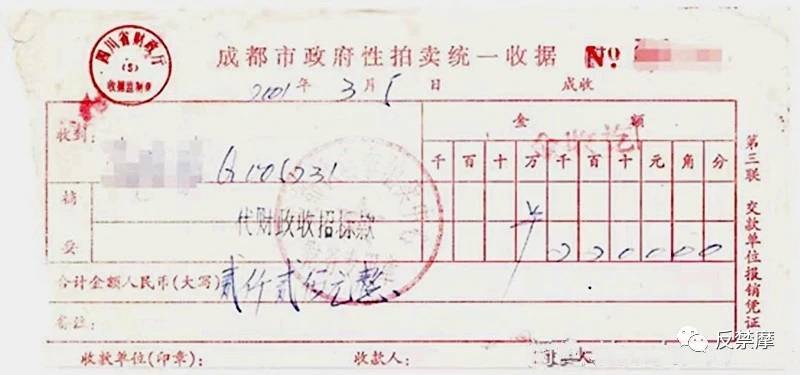 四川省财政厅
(5)
收据监制章
成都市政府性拍卖统一收据 No
2001年3月5日 成收
收到: G105231
金额
千百十万千百十元角分
摘要
代财政收招标款
¥220000
合计金额人民币(大写)贰仟贰佰元整
备注:
收款单位(印章): 收款人:
第三联 交款单位报销凭证
反禁摩